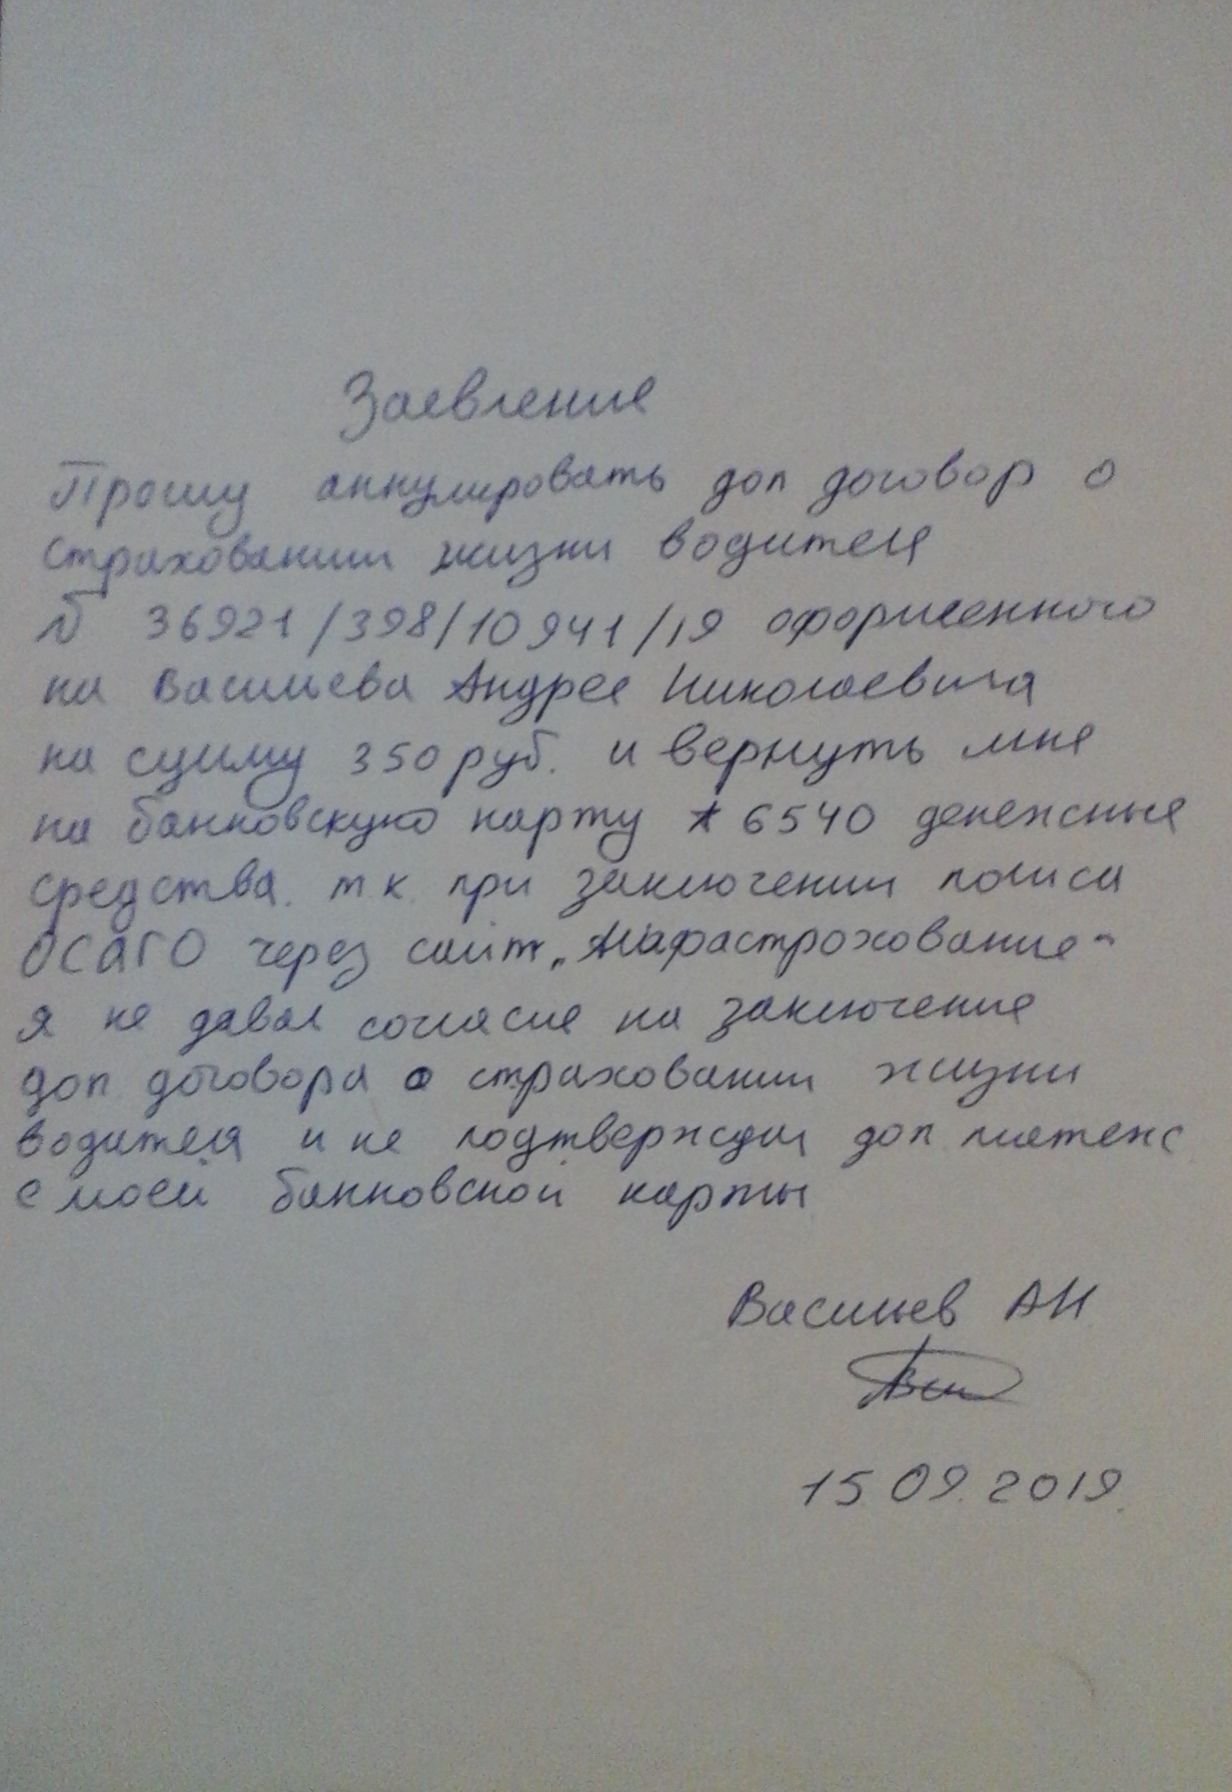 Заевление
Прошу аннулировать доп договор о
страховании жизни водителя
№ 36921/398/10941/19 оформленного
на Васильева Андрея Николаевича
на сумму 350 руб. и вернуть мне
на банковскую карту * 6540 денежные
средства. т к. при заключении полиса
ОСАГО через сайт „Альфастрохование"
я не давал согласие на заключение
доп договора о страховании жизни
водителя и не подтверждал доп платеж
с моей банковской карты
Васильев АН
15 09. 2019.